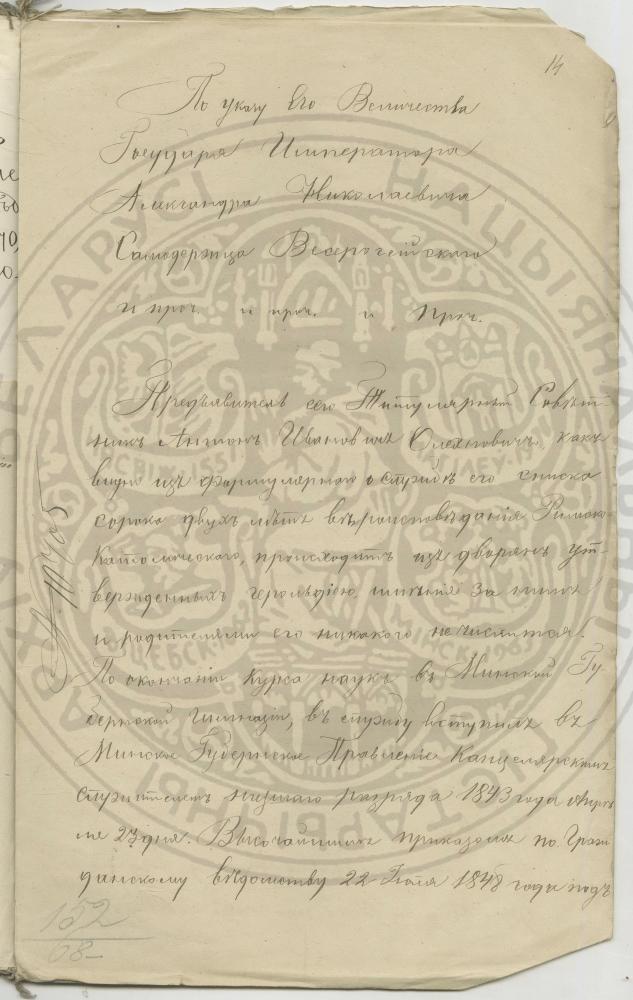 14
По указу Его Величества
Государя Императора
Александра Николаевича
Самодержца Всероссійскаго
и проч. и проч. и проч.
Предъявитель сего Титулярный Совѣт-
никъ Антонъ Ивановичъ Олехновичъ, какъ
видно изъ формулярнаго о службѣ его списка
сорока двухъ лѣтъ вѣроисповѣданія Римско-
Католическаго, происходитъ изъ дворянъ ут-
вержденныхъ герольдіею, имѣнія за нимъ
и родителями его никакого не числится.
По окончаніи курса наукъ въ Минской Гу-
бернской гимназіи, въ службу вступилъ въ
Минское Губернское Правленіе Канцелярскимъ
служителемъ низшаго разряда 1843 года Апрѣ-
ля 23 дня. Высочайшимъ приказомъ по Граж-
данскому вѣдомству 22 Іюля 1848 года подъ
152
68-
НАЦЫЯНА
БЕЛАРУСІ